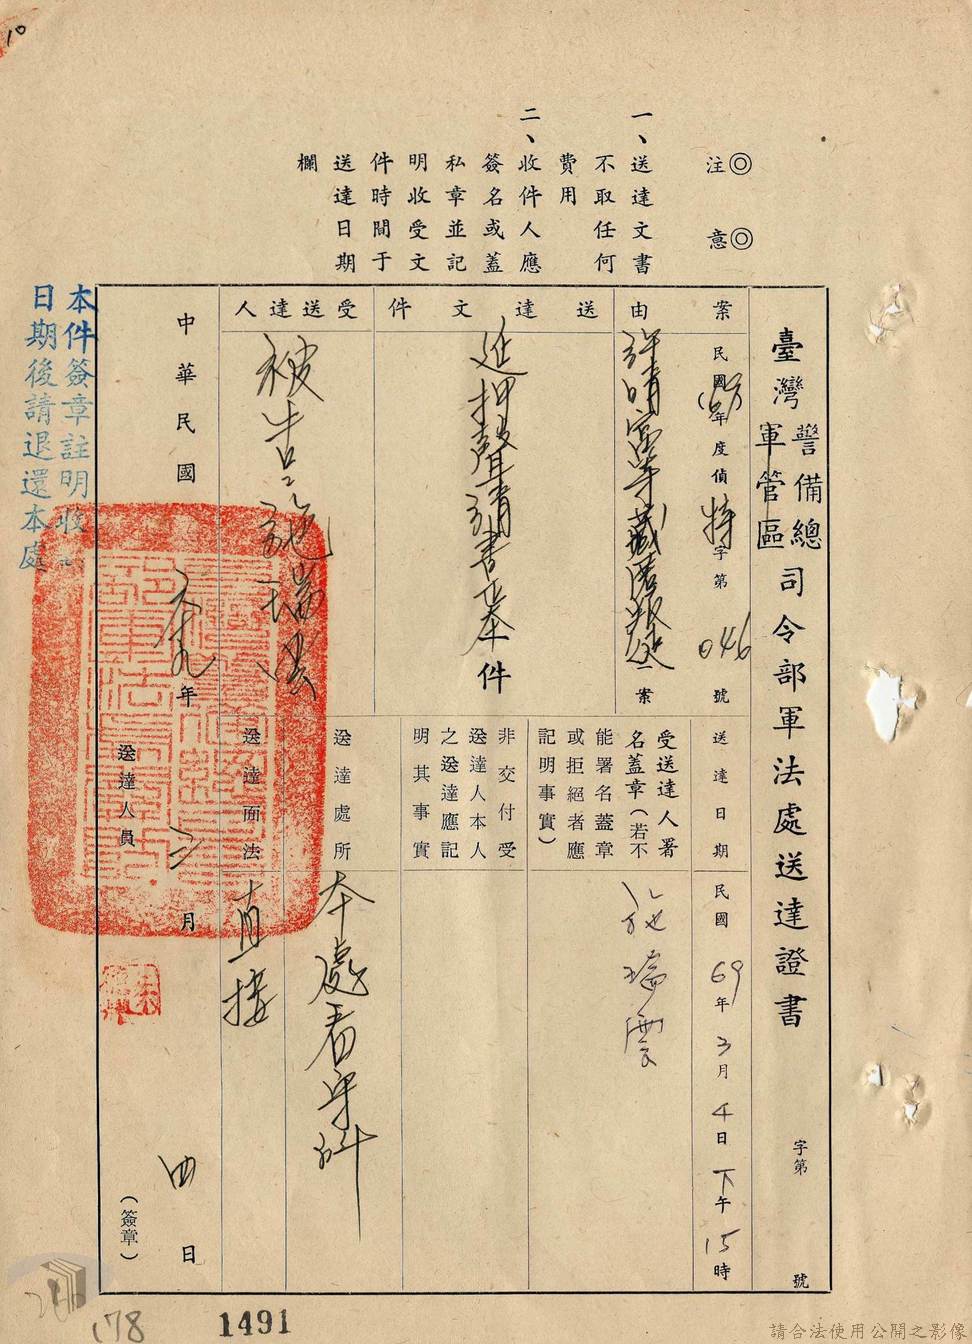 10
◎注意◎
一、送達文書
不取任何
費用
二、收件人應
簽名或蓋
私章並記
明收受文
件時間于
送達日期
欄
臺灣警備總
軍管區
司令部軍法處送達證書
字第
號
案由
民國(69)年度偵特字第046號
許晴富等藏匿叛徒一案
送達文件
延押聲請書乙件
受送達人
被告施瑞雲
送達日期
民國69年3月4日下午15時
受送達人署
名蓋章(若不
能署名蓋章
或拒絕者應
記明事實)
施瑞雲
非交付受
送達人本人
之送達應記
明其事實
送達處所
本處看守所
送達方法
直接
中華民國六十九年三月四日
送達人員
(簽章)
本件簽章註明收
日期後請退還本處
178
1491
請合法使用公開之影像